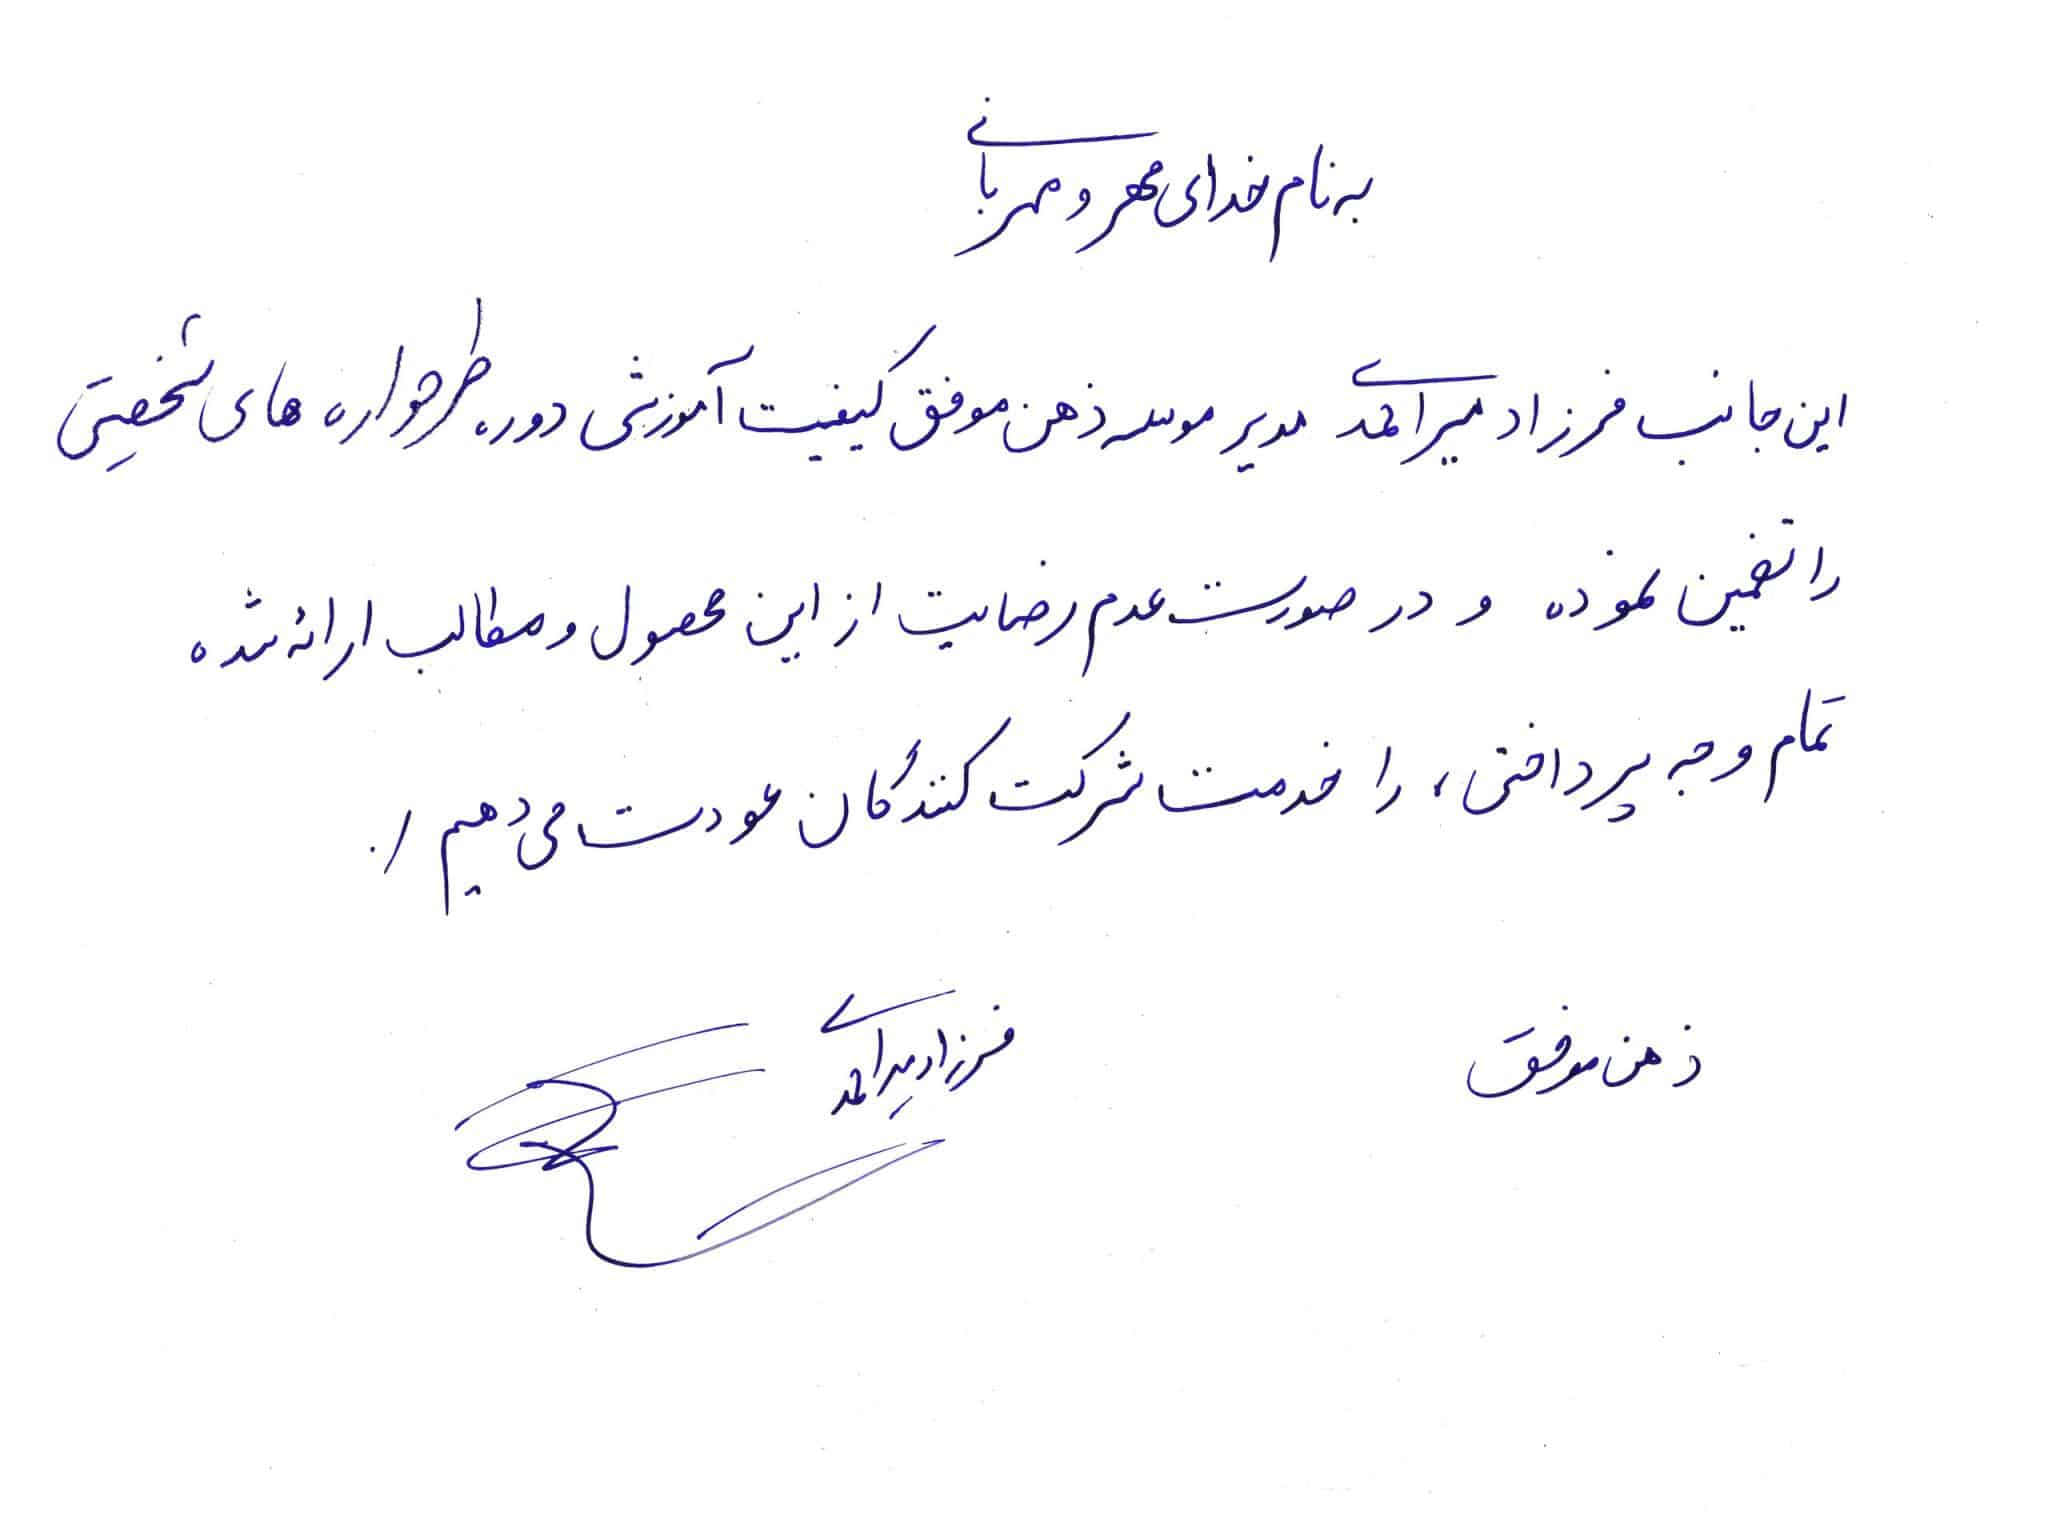 به نام خدای مهر و مهربانی
این جانب فرزاد میراحمدی مدیر موسسه ذهن موفق کیفیت آموزشی دوره طرحواره های شخصیتی
را تضمین نموده و در صورت عدم رضایت از این محصول و مطالب ارائه شده
تمام وجه پرداختی، را خدمت شرکت کنندگان عودت می دهیم /.
ذهن موفق
فرزاد میراحمدی